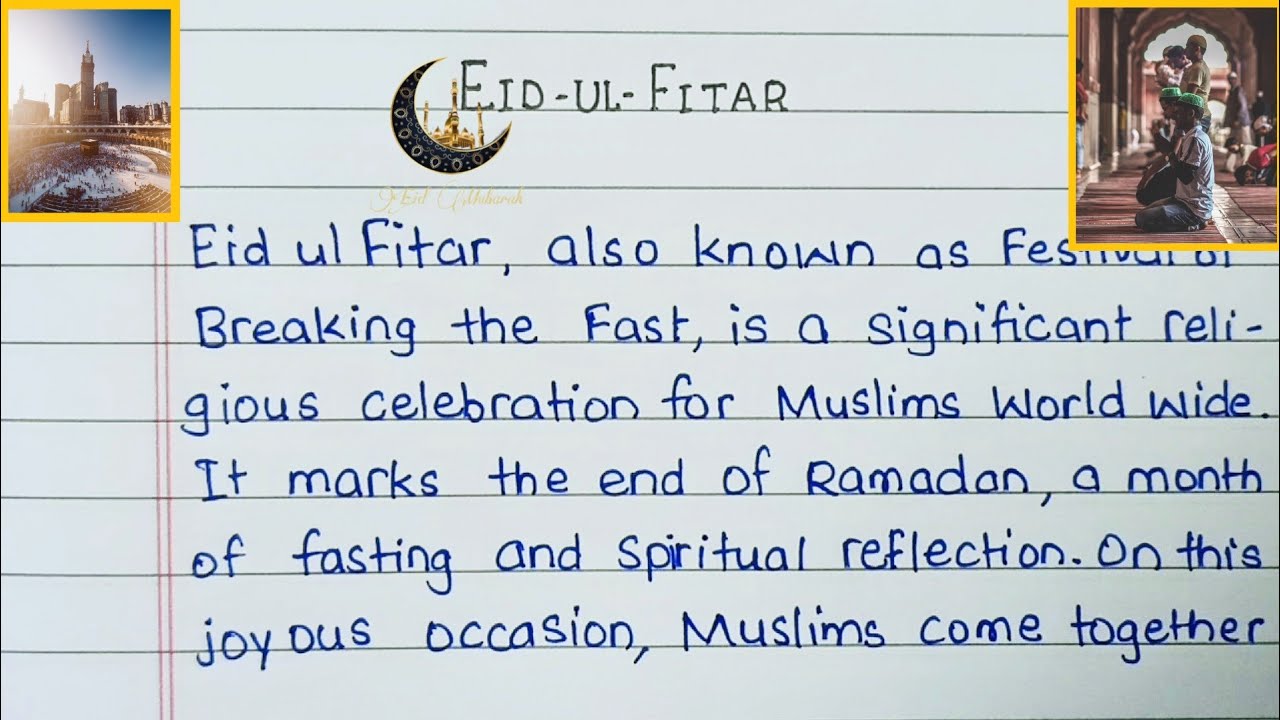 EID-UL-FITAR
Eid Mubarak
Eid ul Fitar, also known as Festival of
Breaking the Fast, is a significant reli-
gious celebration for Muslims World Wide.
It marks the end of Ramadan, a month
of fasting and spiritual reflection. On this
joyous occasion, Muslims come together